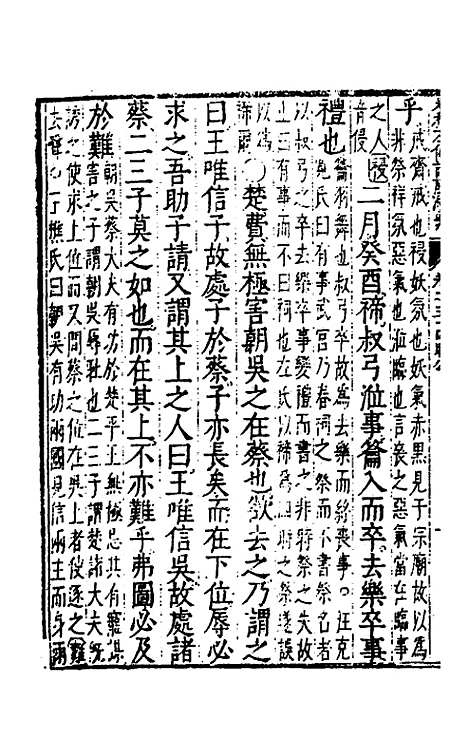 乎
戒齋戒也祲妖氛也妖氣赤黑見于宗廟故以為
非祭祥氛惡氣也涖臨也言喪之惡氣當在臨事
之人
者祲
二月癸酉禘叔弓涖事籥入而卒去樂卒事
禮也
籥籥舞也叔弓卒故去樂而終喪事○汪克
寬氏曰有事武宮乃春祠之祭而不書祭名者
以叔弓之卒去樂卒事變禮而書之非特祭之失故
止曰有事而不曰祠也左氏以禘為四時之祭遂誤
以為
禘爾
○楚費無極害朝吳之在蔡也欲去之乃謂之
曰王唯信子故處子於蔡子亦長矣而在下位辱必
求之吾助子請又謂其上之人曰王唯信吳故處諸
蔡二三子莫之如也而在其上不亦難乎弗圖必及
於難
朝吳蔡大夫有功於楚平王無極忌其有寵
害之子謂朝吳辱耻也二三子謂楚諸大夫既
誘之使求上位而又間蔡之在吳上者使逐之難
去聲○氏曰朝吳有功兩國見信兩主而身兩